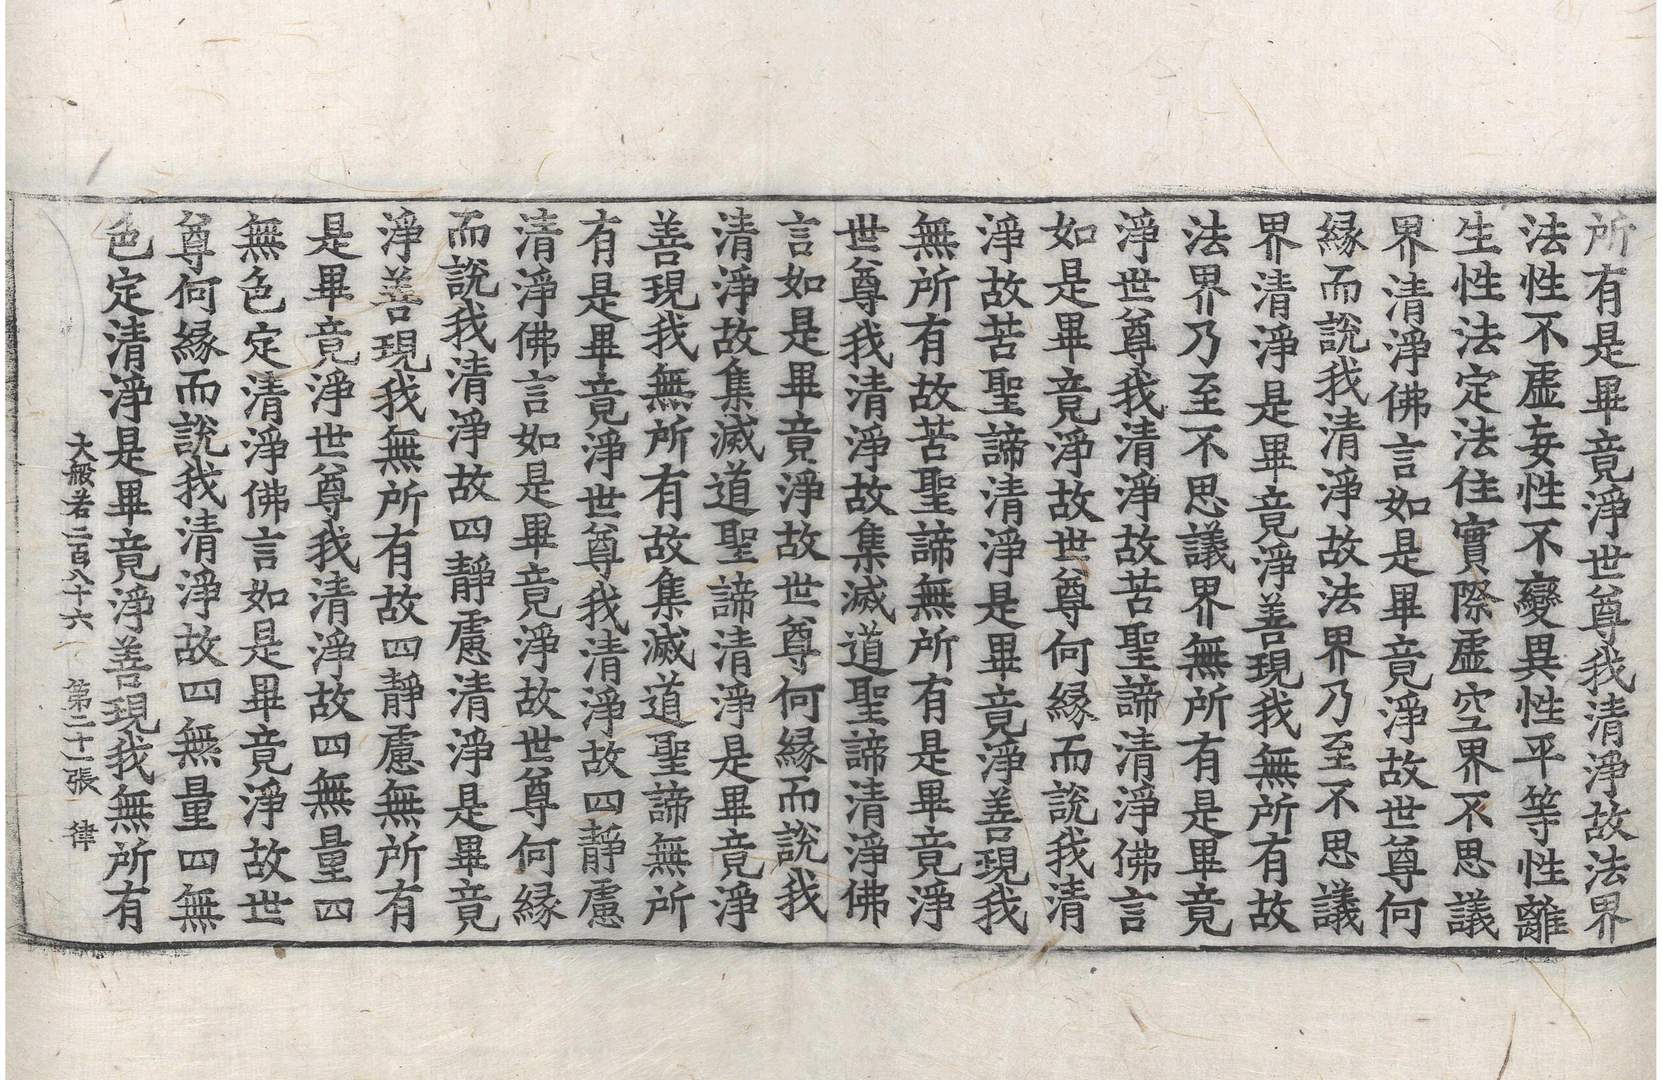 所有是畢竟淨世尊我清淨故法界
法性不虛妄性不變異性平等性離
生性法定法住實際虛空界不思議
界清淨佛言如是畢竟淨故世尊何
緣而說我清淨故法界乃至不思議
界清淨是畢竟淨善現我無所有故
法界乃至不思議界無所有是畢竟
淨世尊我清淨故苦聖諦清淨佛言
如是畢竟淨故世尊何緣而說我清
淨故苦聖諦清淨是畢竟淨善現我
無所有故苦聖諦無所有是畢竟淨
世尊我清淨故集滅道聖諦清淨佛
言如是畢竟淨故世尊何緣而說我
清淨故集滅道聖諦清淨是畢竟淨
善現我無所有故集滅道聖諦無所
有是畢竟淨世尊我清淨故四靜慮
清淨佛言如是畢竟淨故世尊何緣
而說我清淨故四靜慮清淨是畢竟
淨善現我無所有故四靜慮無所有
是畢竟淨世尊我清淨故四無量四
無色定清淨佛言如是畢竟淨故世
尊何緣而說我清淨故四無量四無
色定清淨是畢竟淨善現我無所有
大般若二百八十六 第二十一張 律